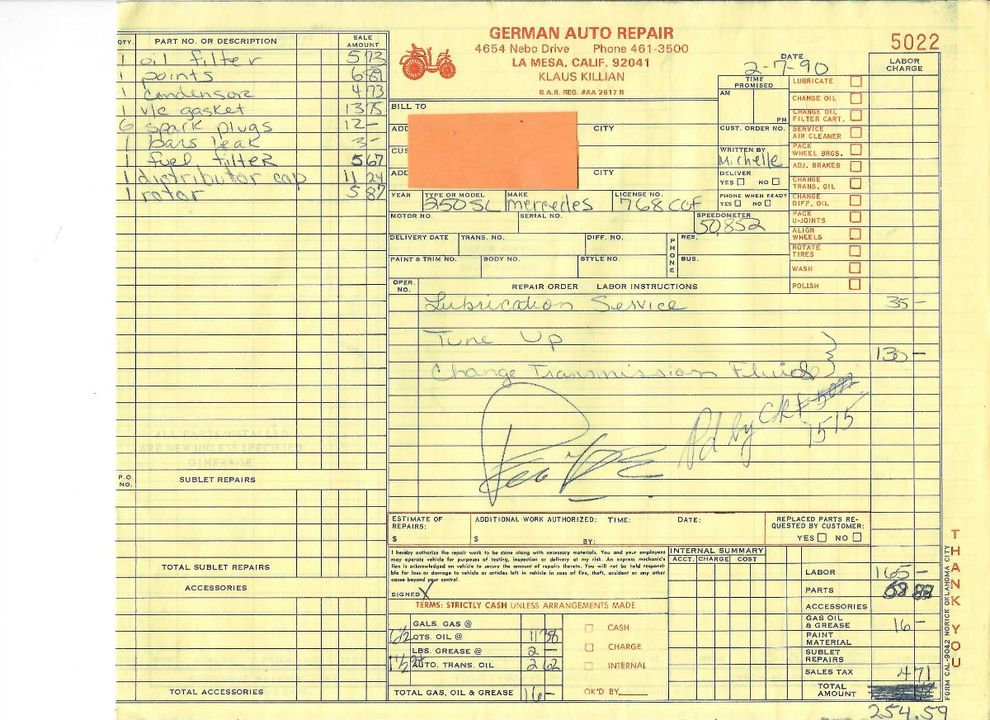 GERMAN AUTO REPAIR
4654 Nebo Drive Phone 461-3500
LA MESA, CALIF. 92041
KLAUS KILLIAN
B.A.R. REG. #AA 2617 R
5022
DATE
2-7-90
QTY. PART NO. OR DESCRIPTION SALE AMOUNT
1 oil filter 5 73
1 points
1 condensore 4 73
1 v/c gasket 13 75
6 spark plugs 12 -
1 bars leak 3 -
1 fuel filter 5 67
1 distributor cap 11 24
1 rotor 5 87
ALL PARTS INSTALLED
ARE NEW UNLESS SPECIFIED
OTHERWISE
P.O. NO. SUBLET REPAIRS
TOTAL SUBLET REPAIRS
ACCESSORIES
TOTAL ACCESSORIES
BILL TO
ADD CITY
CUS
ADD CITY
TIME PROMISED
AM
PM
CUST. ORDER NO.
WRITTEN BY
Michelle
DELIVER
YES NO
PHONE WHEN READY
YES NO
LABOR CHARGE
LUBRICATE
CHANGE OIL
CHANGE OIL FILTER CART.
SERVICE AIR CLEANER
PACK WHEEL BRGS.
ADJ. BRAKES
CHANGE TRANS. OIL
CHANGE DIFF. OIL
PACK U-JOINTS
ALIGN WHEELS
ROTATE TIRES
WASH
POLISH
YEAR TYPE OR MODEL MAKE LICENSE NO.
250SL mercedes 768 CGF
MOTOR NO. SERIAL NO. SPEEDOMETER
50,852
DELIVERY DATE TRANS. NO. DIFF. NO. PHONE RES.
PAINT & TRIM NO. BODY NO. STYLE NO. BUS.
OPER. NO. REPAIR ORDER LABOR INSTRUCTIONS
Lubrication Service 35 -
Tune Up
130 -
Change Transmission Fluid
Pd by Ck#
1515
ESTIMATE OF REPAIRS: $
ADDITIONAL WORK AUTHORIZED: TIME: DATE:
$ BY:
REPLACED PARTS REQUESTED BY CUSTOMER:
YES NO
I hereby authorize the repair work to be done along with necessary materials. You and your employees
may operate vehicle for purposes of testing, inspection or delivery at my risk. An express mechanic's
lien is acknowledged on vehicle to secure the amount of repairs thereto. You will not be held responsi-
ble for loss or damage to vehicle or articles left in vehicle in case of fire, theft, accident or any other
cause beyond your control.
SIGNED X
TERMS: STRICTLY CASH UNLESS ARRANGEMENTS MADE
INTERNAL SUMMARY
ACCT. CHARGE COST
GALS. GAS @
7 1/2 QTS. OIL @ 11 38
LBS. GREASE @ 2 -
1 1/2 AUTO. TRANS. OIL 2 62
TOTAL GAS, OIL & GREASE 16 -
CASH
CHARGE
INTERNAL
OK'D BY
LABOR 165 -
PARTS 68 88
ACCESSORIES
GAS OIL & GREASE 16 -
PAINT MATERIAL
SUBLET REPAIRS
SALES TAX 4 71
TOTAL AMOUNT
254.59
THANK YOU
FORM CAL-9042 NORICK OKLAHOMA CITY